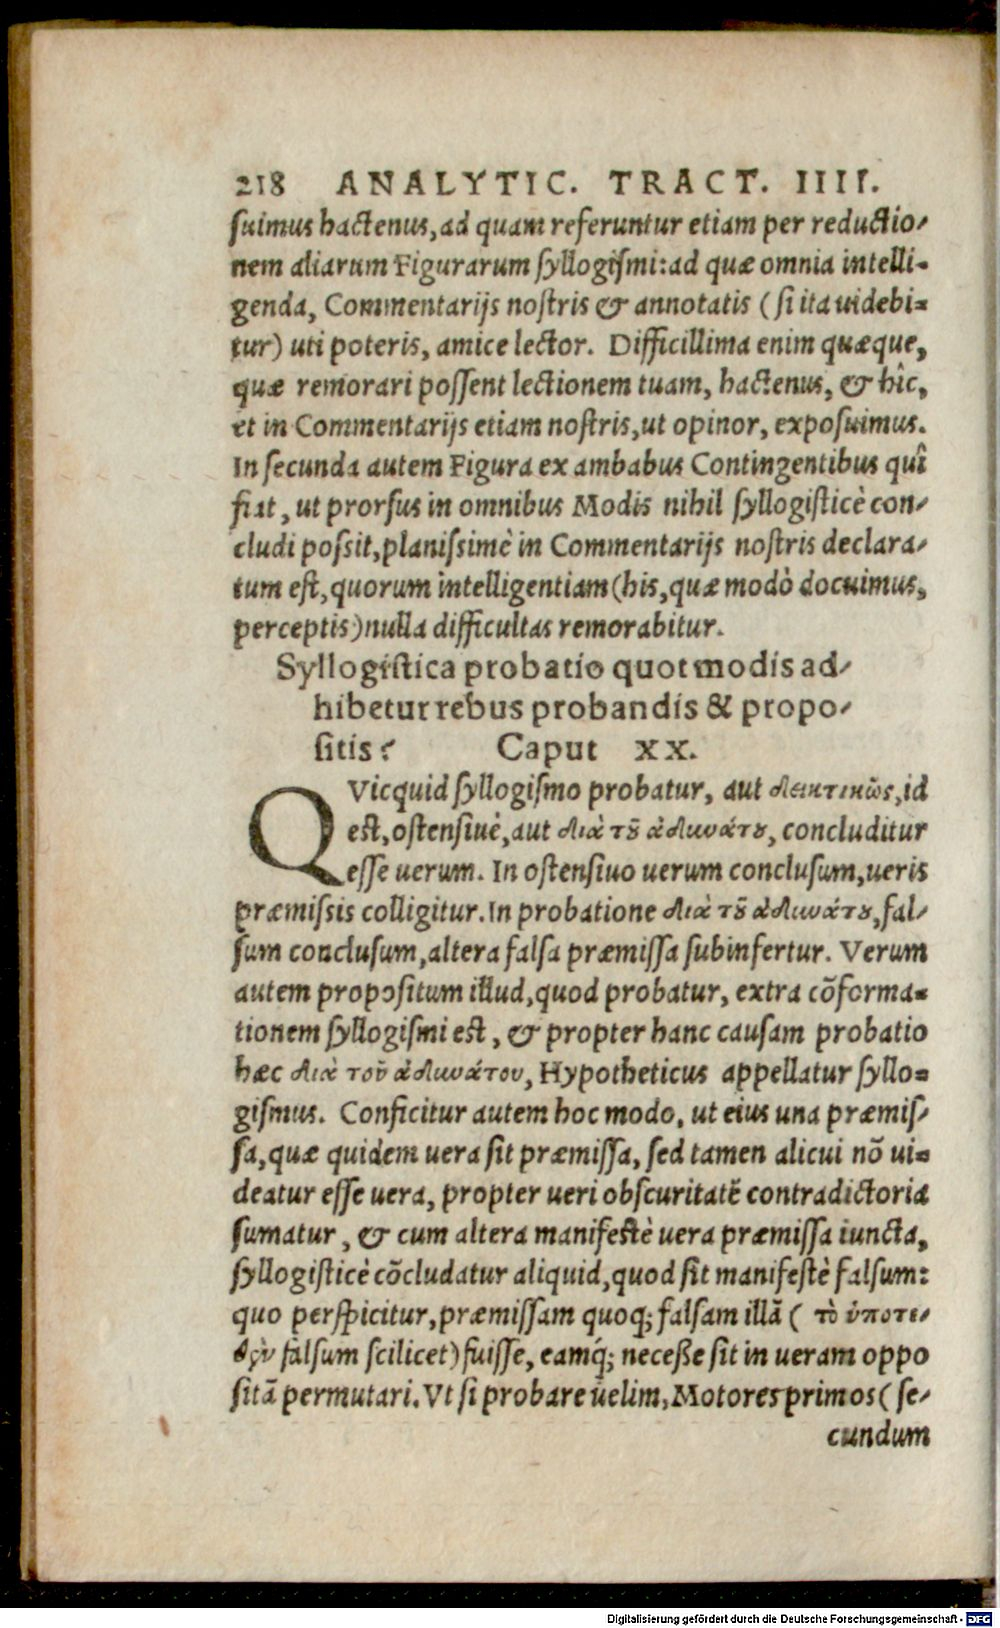 218 ANALYTIC. TRACT. IIII.
suimus hactenus, ad quam referuntur etiam per reductio-
nem aliarum Figurarum syllogismi: ad quæ omnia intelli-
genda, Commentarijs nostris & annotatis (si ita uidebi-
tur) uti poteris, amice lector. Difficillima enim quæque,
quæ remorari possent lectionem tuam, hactenus, & hîc,
et in Commentarijs etiam nostris, ut opinor, exposuimus.
In secunda autem Figura ex ambabus Contingentibus quî
fiat, ut prorsus in omnibus Modis nihil syllogisticè con-
cludi possit, planissimè in Commentarijs nostris declara-
tum est, quorum intelligentiam (his, quæ modò docuimus,
perceptis) nulla difficultas remorabitur.
Syllogistica probatio quot modis ad-
hibetur rebus probandis & propo-
sitis? Caput XX.
QVicquid syllogismo probatur, aut δεικτικῶς, id
est, ostensiuè, aut διὰ τοῦ ἀδυνάτου, concluditur
esse uerum. In ostensiuo uerum conclusum, ueris
præmissis colligitur. In probatione διὰ τοῦ ἀδυνάτου, fal-
sum conclusum, altera falsa præmissa subinfertur. Verum
autem propositum illud, quod probatur, extra cõforma-
tionem syllogismi est, & propter hanc causam probatio
hæc διὰ τοῦ ἀδυνάτου, Hypotheticus appellatur syllo-
gismus. Conficitur autem hoc modo, ut eius una præmis-
sa, quæ quidem uera sit præmissa, sed tamen alicui nõ ui-
deatur esse uera, propter ueri obscuritatẽ contradictoria
sumatur, & cum altera manifestè uera præmissa iuncta,
syllogisticè cõcludatur aliquid, quod sit manifestè falsum:
quo perspicitur, præmissam quoq; falsam illã (τὸ ὑποτε-
θὲν falsum scilicet) fuisse, eamq́; necesse sit in ueram oppo
sitã permutari. Vt si probare uelim, Motores primos (se-
cundum
Digitalisierung gefördert durch die Deutsche Forschungsgemeinschaft - DFG